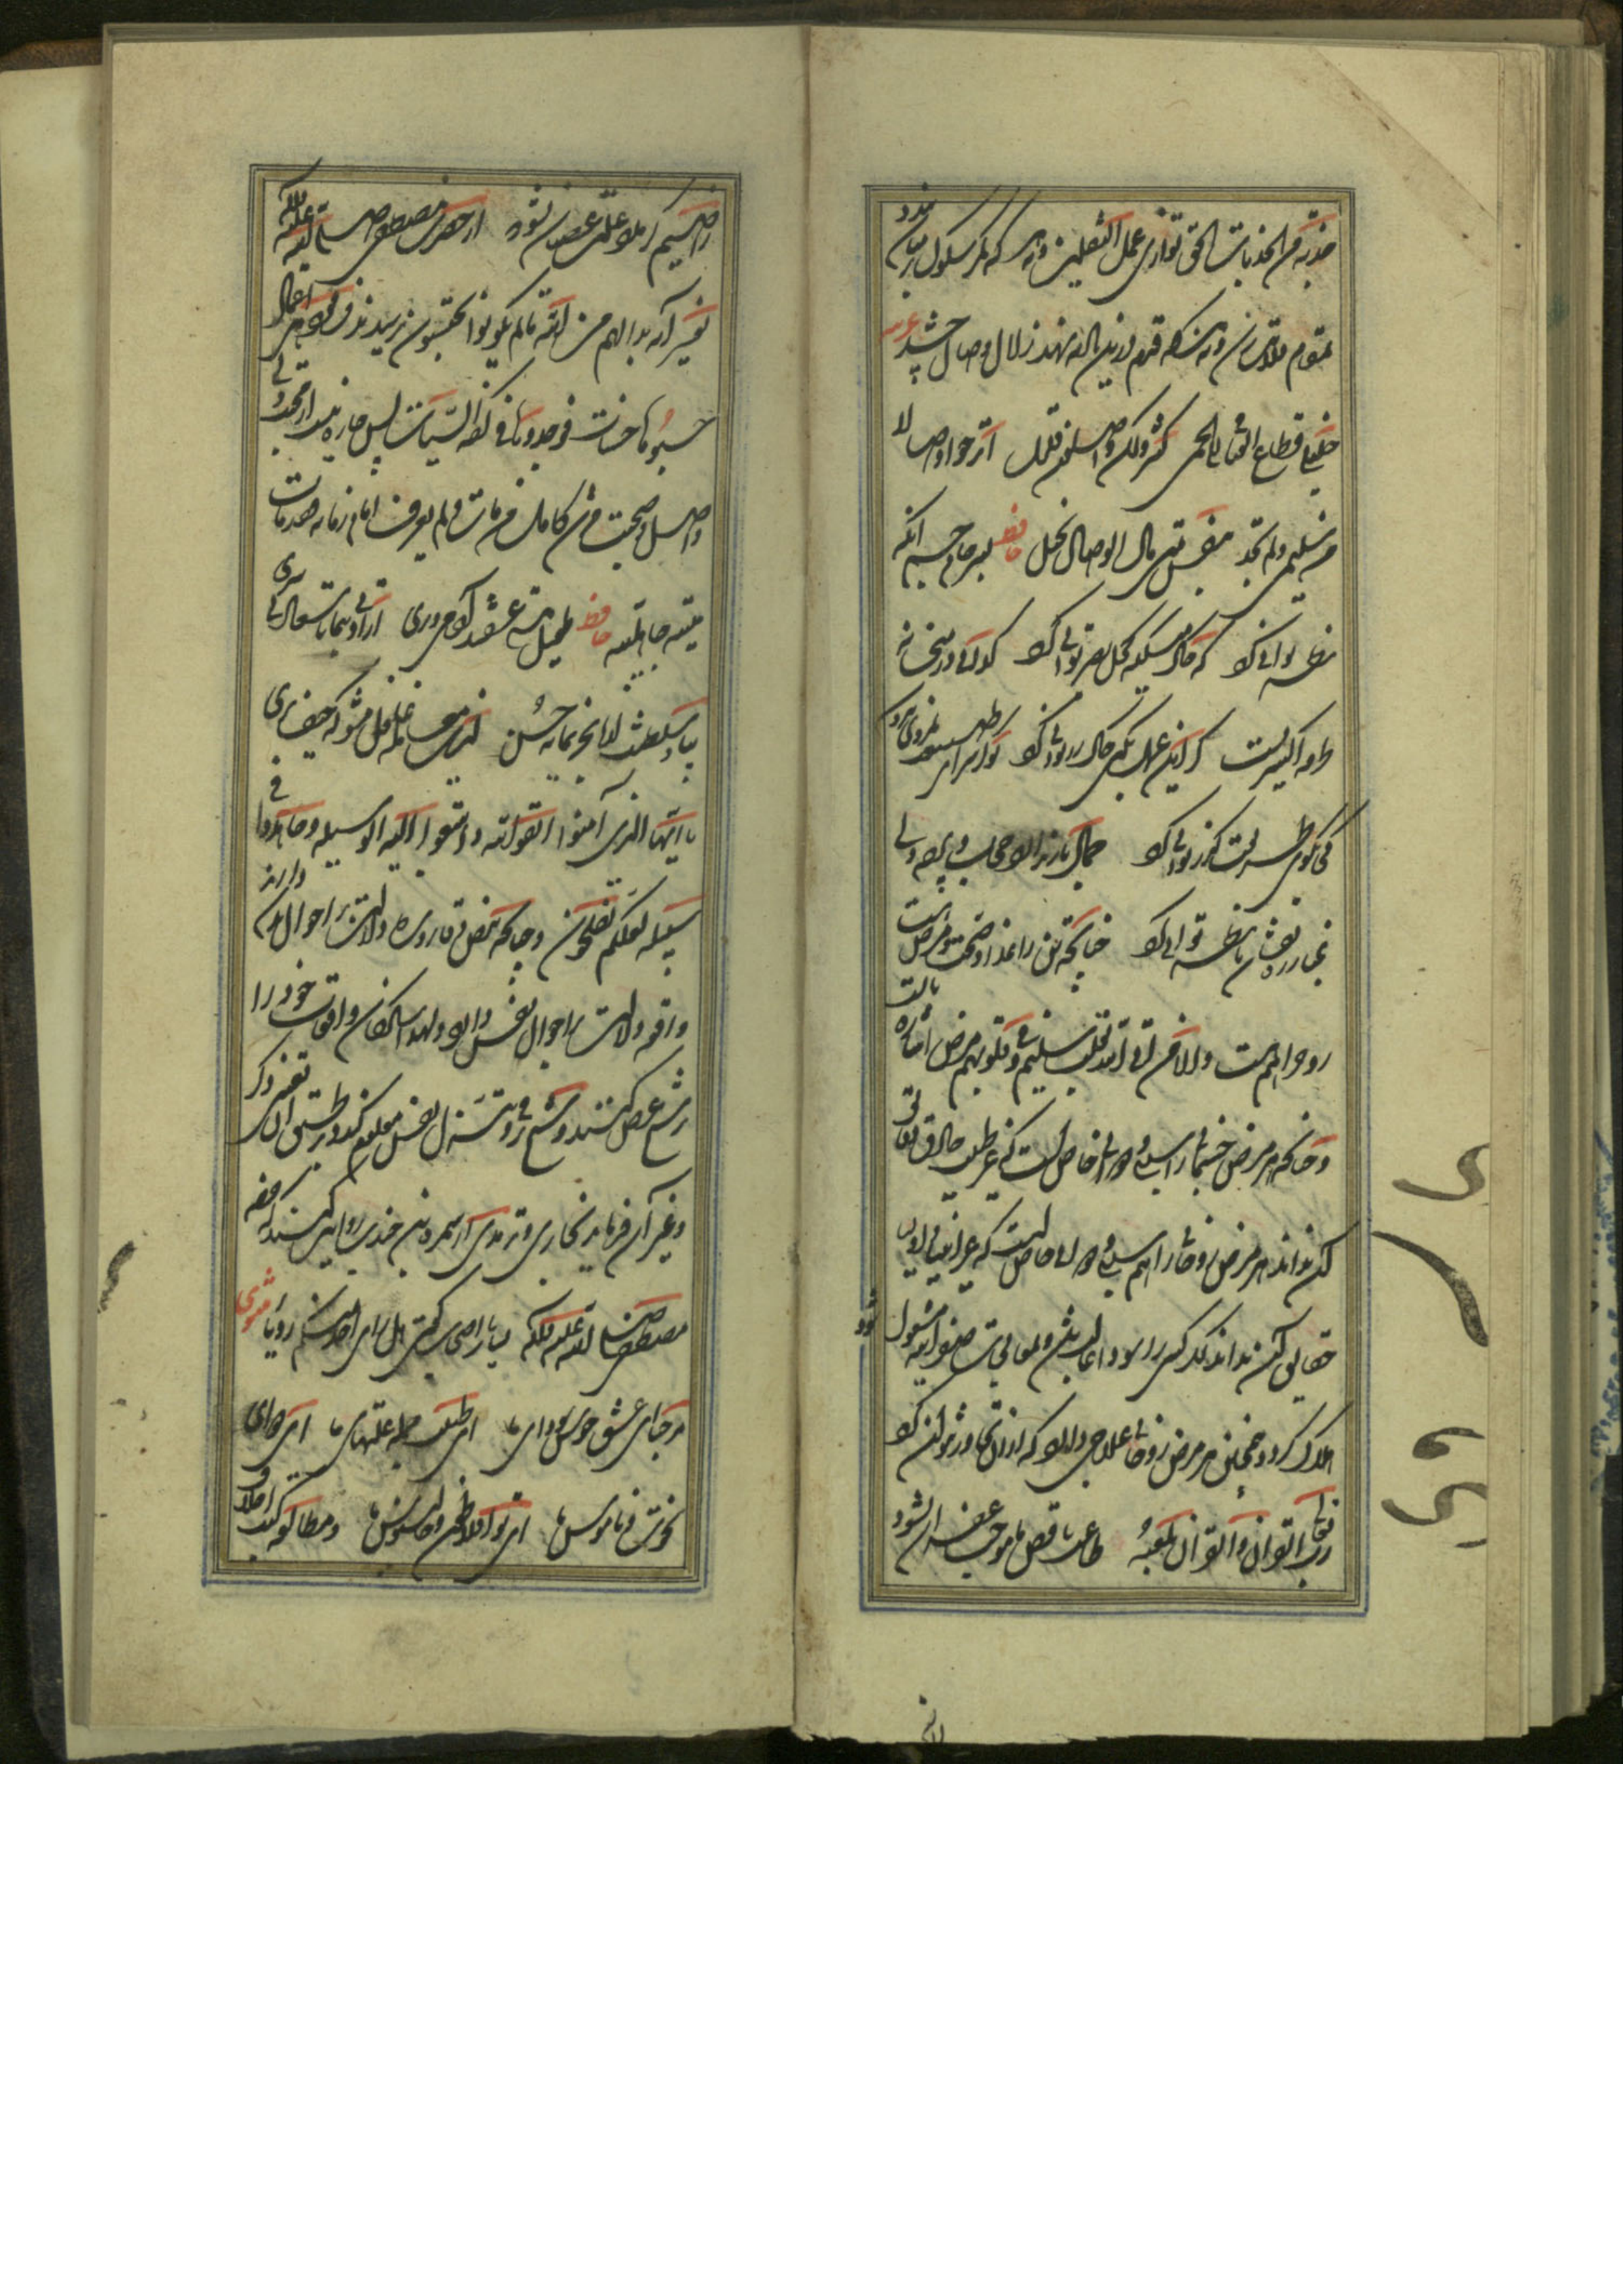 جذبة من جذبات الحق توازی عمل الثقلین و هر که بکر سلوک بر میان بندد
بمقام ملاقات رسان و هر که قدم درین راه نهد زلال وصال چشد عربیه
خلیلی قطاع الفیافی الی الحمی کثیر ولکن واصلون قلیل اترجوا وصالا
من سلیمی ولم تجد بنفس متی نال الوصال بخیل حافظ بسر جام جم آنگه
نظر توانی کرد که خاک میکده کحل بصر توانی کرد گدائی در میخانه
طرفه اکسیریست گر این عمل بکنی خاک زر توانی کرد تو کز سرای طبیعت نمیروی بیرون
کجا بکوی طریقت گذر توانی کرد جمال یار ندارد حجاب و پرده ولی
غبار ره بنشان تا نظر توانی کرد چنانچه تن را غذا و صحت و مرض است
روح را هم هست و الا من اتی الله بقلب سلیم و فی قلوبهم مرض اشاره بآنست
و چنانکه هر مرض جسمانی را سببی و دوائی خاص است که غیر طبیب حاذق
کس نداند هر مرض روحانی را هم سببی و دوائی خاص است که غیر انبیا و اولیا
حقایق آن نداند که کسی در سودا و معالجات صفرا مشغول شود
هلاک گردد و همچنین هر مرض روحانی علاجی دارد که از آن تجاوز نتوان کرد
رب تالی القرآن والقرآن یلعنه طاعت ناقص ما موجب غفران نشود
راضیم گر مدد علت عصیان نشود از حضرت مصطفی صلی الله علیه و آله
تفسیر آیه بدا لهم من الله ما لم یکونوا یحتسبون پرسیدند فرمود هی اعمال
حسبوها حسنات فوجدوها فی کفة السیئات پس چاره نیست از خدمت ولی
واصل و صحبت مرشد کامل من مات ولم یعرف امام زمانه فقد مات
میتة جاهلیة حافظ طفیل هستی عشقند آدمی و پری ارادتی بنما تا سعادتی ببری
بیا و سلطنت از ما بخر بمایه حسن ازین معامله غافل مشو که حیف خوری
یا ایها الذین آمنوا اتقوا الله وابتغوا الیه الوسیلة وجاهدوا فی
سبیله لعلکم تفلحون و چنانکه نبض و قاروره دلالت بر احوال بدن دارند
واقعه دلالت بر احوال نفس دارد و لهذا سالکان واقعات خود را
بر شیخ عرض کنند و شیخ ترقی و تنزل نفس معلوم کند و بر طبق آن تعبیر و ذکر
و غیر آن فرماید بخاری و ترمذی از سمرة بن جندب روایت کنند که حضرت
مصطفی صلی الله علیه و آله بسیار اصحاب گفتی هل رأی احد منکم رؤیا مثنوی
مرحبا ای عشق خوش سودای ما ای طبیب جمله علتهای ما ای دوای
نخوت و ناموس ما ای تو افلاطون و جالینوس ما و مطالعه کتب اخلاق